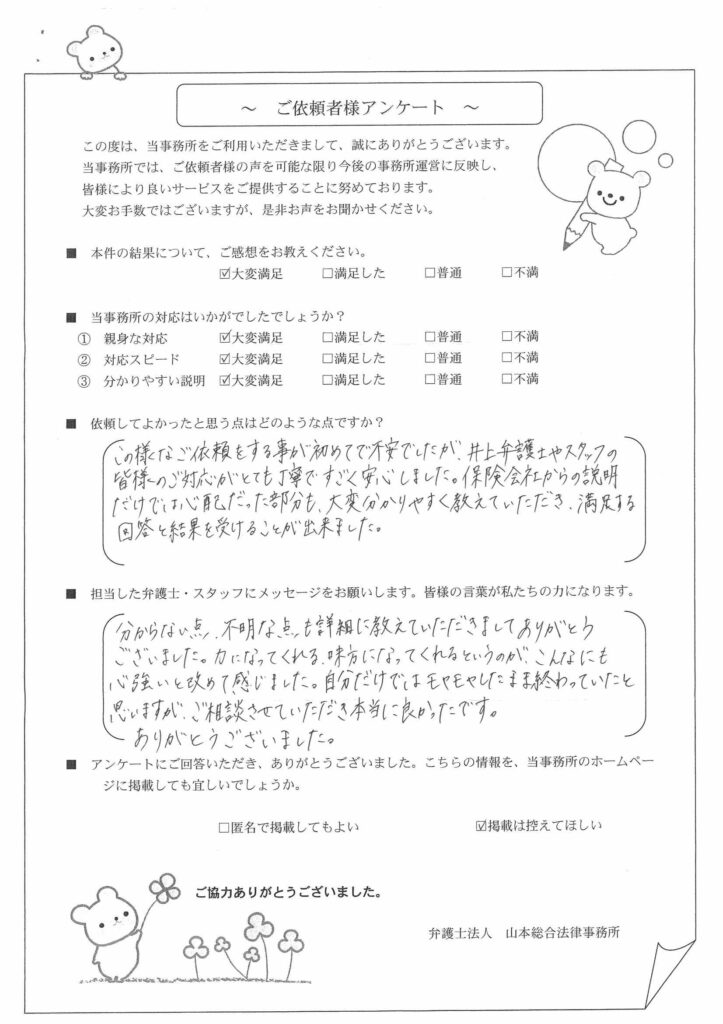 ～ ご依頼者様アンケート ～
この度は、当事務所をご利用いただきまして、誠にありがとうございます。
当事務所では、ご依頼者様の声を可能な限り今後の事務所運営に反映し、
皆様により良いサービスをご提供することに努めております。
大変お手数ではございますが、是非お声をお聞かせください。
■ 本件の結果について、ご感想をお教えください。
☑大変満足 □満足した □普通 □不満
■ 当事務所の対応はいかがでしたでしょうか？
① 親身な対応 ☑大変満足 □満足した □普通 □不満
② 対応スピード ☑大変満足 □満足した □普通 □不満
③ 分かりやすい説明 ☑大変満足 □満足した □普通 □不満
■ 依頼してよかったと思う点はどのような点ですか？
この様なご依頼をする事が初めてで不安でしたが、井上弁護士やスタッフの
皆様のご対応がとても丁寧ですごく安心しました。保険会社からの説明
だけでは心配だった部分も、大変分かりやすく教えていただき、満足する
回答と結果を受けることが出来ました。
■ 担当した弁護士・スタッフにメッセージをお願いします。皆様の言葉が私たちの力になります。
分からない点、不明な点も詳細に教えていただきましてありがとう
ございました。力になってくれる、味方になってくれるというのが、こんなにも
心強いと改めて感じました。自分だけではモヤモヤしたまま終わっていたと
思いますが、ご相談させていただき本当に良かったです。
ありがとうございました。
■ アンケートにご回答いただき、ありがとうございました。こちらの情報を、当事務所のホームペー
ジに掲載しても宜しいでしょうか。
□匿名で掲載してもよい ☑掲載は控えてほしい
ご協力ありがとうございました。
弁護士法人 山本総合法律事務所